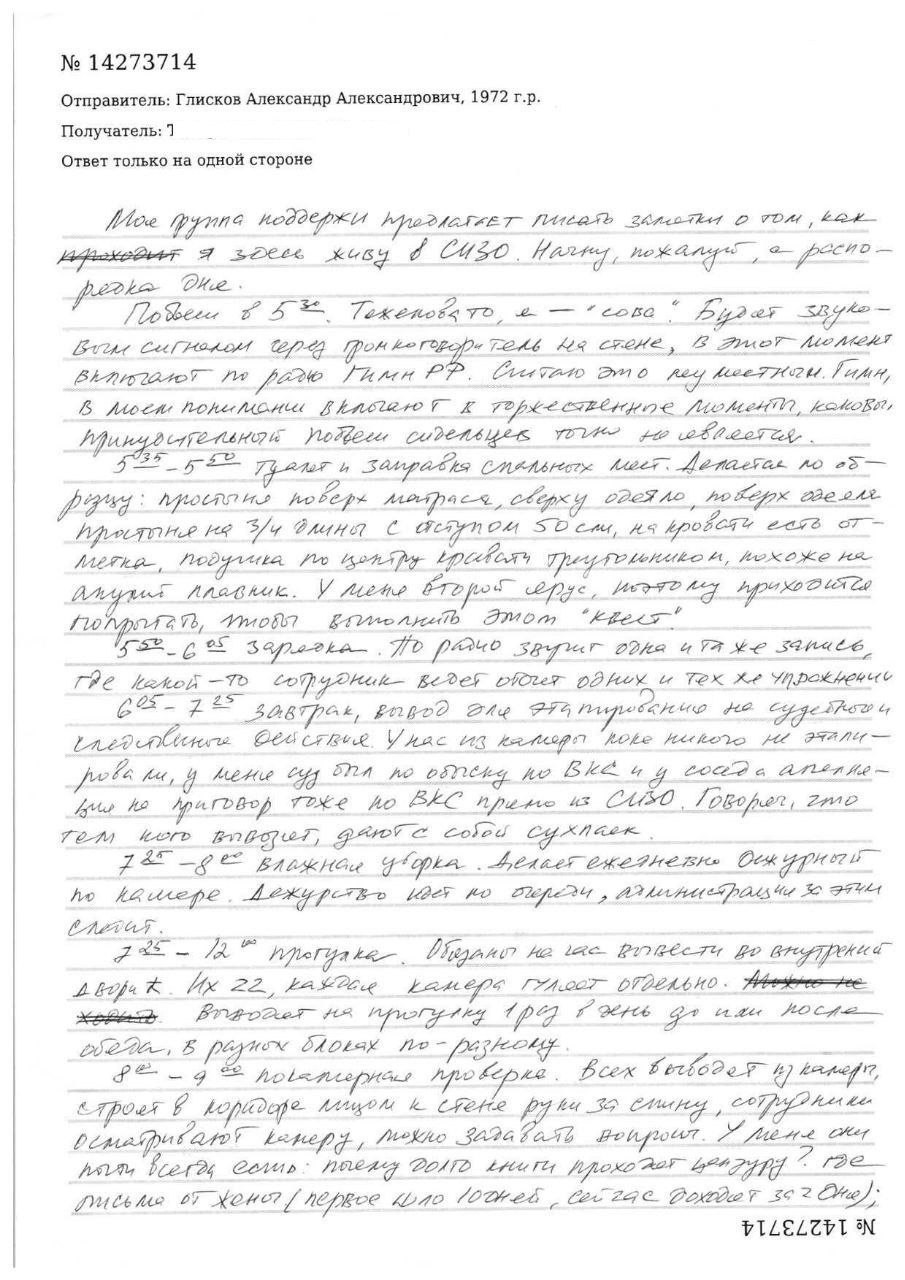 № 14273714
Отправитель: Глисков Александр Александрович, 1972 г.р.
Получатель: Т
Ответ только на одной стороне
Моя группа поддержки предлагает писать заметки о том, как
проходит я здесь живу в СИЗО. Начну, пожалуй, с распо-
рядка дня.
Подъем в 5 30. Тяжеловато, я — "сова". Будят звуко-
вым сигналом через громкоговоритель на стене, в этот момент
включают по радио Гимн РФ. Считаю это неуместным. Гимн,
в моем понимании включают в торжественные моменты, каковым
принудительный подъем сидельцев точно не является.
5 35 – 5 50 туалет и заправка спальных мест. Делается по об-
разцу: простыня поверх матраса, сверху одеяло, поверх одеяла
простыня на 3/4 длины с отступом 50 см, на кровати есть от-
метка, подушка по центру кровати треугольником, похоже на
акулий плавник. У меня второй ярус, поэтому приходится
попрыгать, чтобы выполнить этот "квест".
5 50 – 6 05 Зарядка. По радио звучит одна и та же запись,
где какой-то сотрудник ведет отсчет одних и тех же упражнений
6 05 – 7 25 завтрак, вывод для этапирования на судебные и
следственные действия. У нас из камеры пока никого не этапи-
ровали, у меня суд был по обыску по ВКС и у соседа апелля-
ция на приговор тоже по ВКС прямо из СИЗО. Говорят, что
тем кого вывозят, дают с собой сухпаек.
7 25 – 8 00 влажная уборка. Делает ежедневно дежурный
по камере. Дежурство идет по очереди, администрация за этим
следит.
7 25 – 12 00 прогулка. Обязаны на час вывести во внутрений
дворик. Их 22, каждая камера гуляет отдельно. Можно не
ходить. Выводят на прогулку 1 раз в день до или после
обеда, в разных блоках по-разному.
8 00 – 9 00 покамерная проверка. Всех выводят из камеры,
строят в коридоре лицом к стене руки за спину, сотрудники
осматривают камеру, можно задавать вопросы. У меня они
почти всегда есть: почему долго книги проходят цензуру? где
письма от жены (первое шло 10 дней, сейчас доходят за 2 дня);
№ 14273714